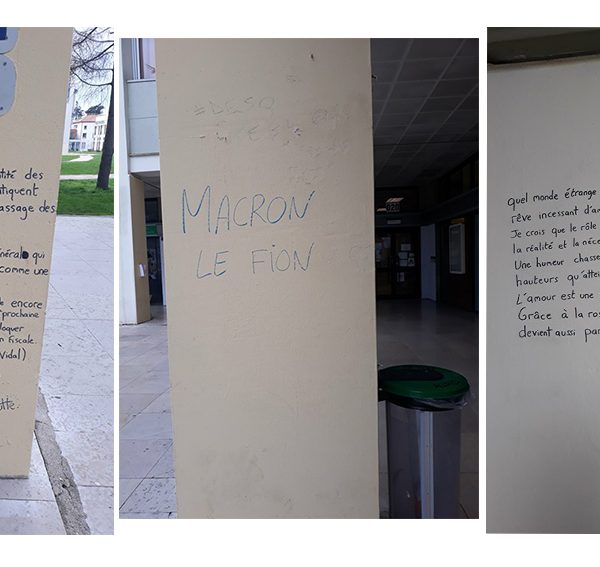 tité des
tiquent
assage des
énéral qui
comme une
de encore
prochaine
loquer
n fiscale.
Vidal)
tte.
MACRON
LE FION
quel monde étrange
rêve incessant d'am
Je crois que le rôle
la réalité et la néce
Une humeur chasse
hauteurs qu'attei
L'amour est une
Grâce à la ros
devient aussi par